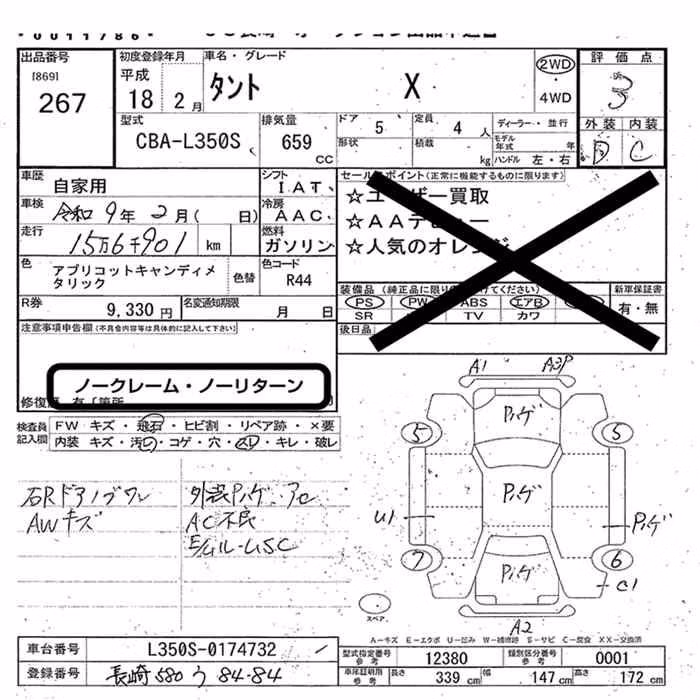 出品番号
[869]
267
初度登録年月
平成
18 2月
車名・グレード
タント X
2WD
4WD
評価点
3
外装 内装
D C
型式
CBA-L350S
排気量
659 CC
ドア 5
定員 4 人
形状
積載 kg
ディーラー・並行
モデル年式 年
ハンドル 左・右
車歴
自家用
シフト
IAT
セールスポイント(正常に機能するものに限ります)
☆ユーザー買取
☆AAデビュー
☆人気のオレンジ
車検
令和9年2月( 日)
冷房
AAC
走行
15万6千901 km
燃料
ガソリン
色
アプリコットキャンディメタリック
色替
色コード
R44
R券
9,330円
名変通知期限
月 日
装備品
PS PW ABS エアB
SR TV カワ
新車保証書
有・無
後日品
注意事項申告欄(不具合内容等は具体的に記入して下さい)
ノークレーム・ノーリターン
検査員記入欄
FW キズ・飛石・ヒビ割・リペア跡・×要
内装 キズ・汚レ・コゲ・穴・スレ・キレ・破レ
AWキズ
AC不良
A1
A3P
5
5
7
6
U1
C1
A2
スペア
A-キズ E-エクボ U-凹み W-補修跡 S-サビ C-腐食 XX-交換済
車台番号
L350S-0174732
登録番号
長崎 580 う 84-84
型式指定番号
参考
12380
類別区分番号
参考
0001
車庫証明用
参考
長さ 339 cm
幅 147 cm
高さ 172 cm